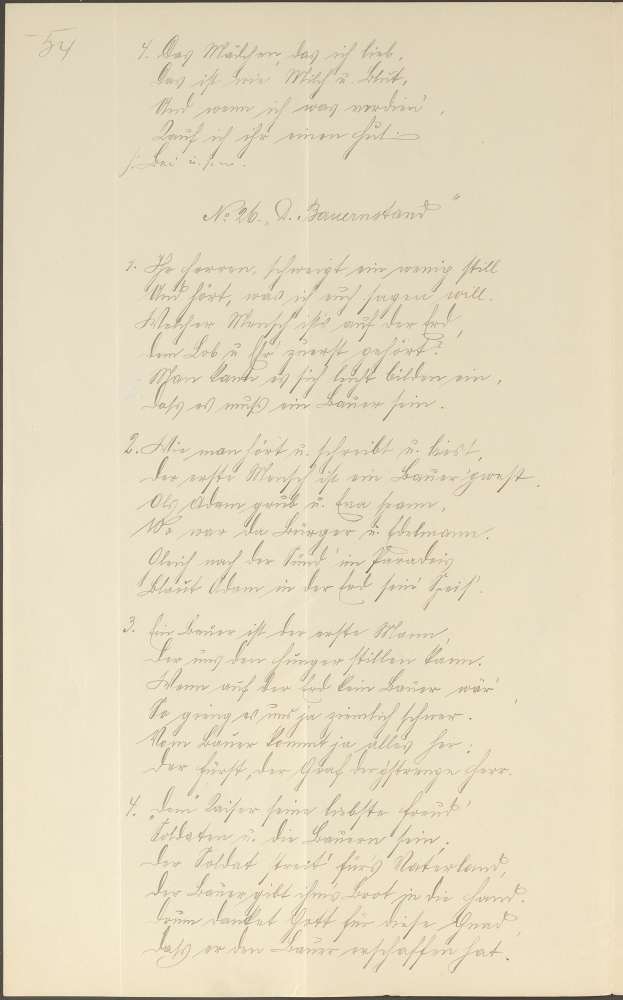 54
4. Das Mädchen, das ich lieb,
Das ist wie Milch u. Blut,
Und wenn ich was verdien',
Kauf ich ihr einen Hut.
|: Bei u. s. w.
No 26. „D. Bauernstand"
1. Ihr Herren, schweigt ein wenig still
Und hört, was ich euch sagen will.
Welcher Mensch ist's auf der Erd,
dem Lob u. Ehr' zuerst gehört?
Man kann es sich leicht bilden ein,
Dass es muß ein Bauer sein.
2. Wie man hört u. schreibt u. liest,
Der erste Mensch ist ein Bauer gwest.
Als Adam grub u. Eva spann,
Wo war da Bürger u. Edelmann.
Gleich nach der Sünd' im Paradeis
Baut Adam in der Erd sein' Speis'.
3. Ein Bauer ist der erste Mann,
Der uns den Hunger stillen kann.
Wenn auf der Erd kein Bauer wär',
So gieng es uns ja ziemlich schwer.
Vom Bauer kommt ja alles her:
Der Fürst, der Graf, der gstrenge Herr.
4. Dem Kaiser seine liebste Freud'
Soldaten u. die Bauern sein.
Der Soldat streit' für's Vaterland,
Der Bauer gibt ihm's Brot in die Hand.
Drum danket Gott für diese Gnad,
Dass er den Bauer erschaffen hat.